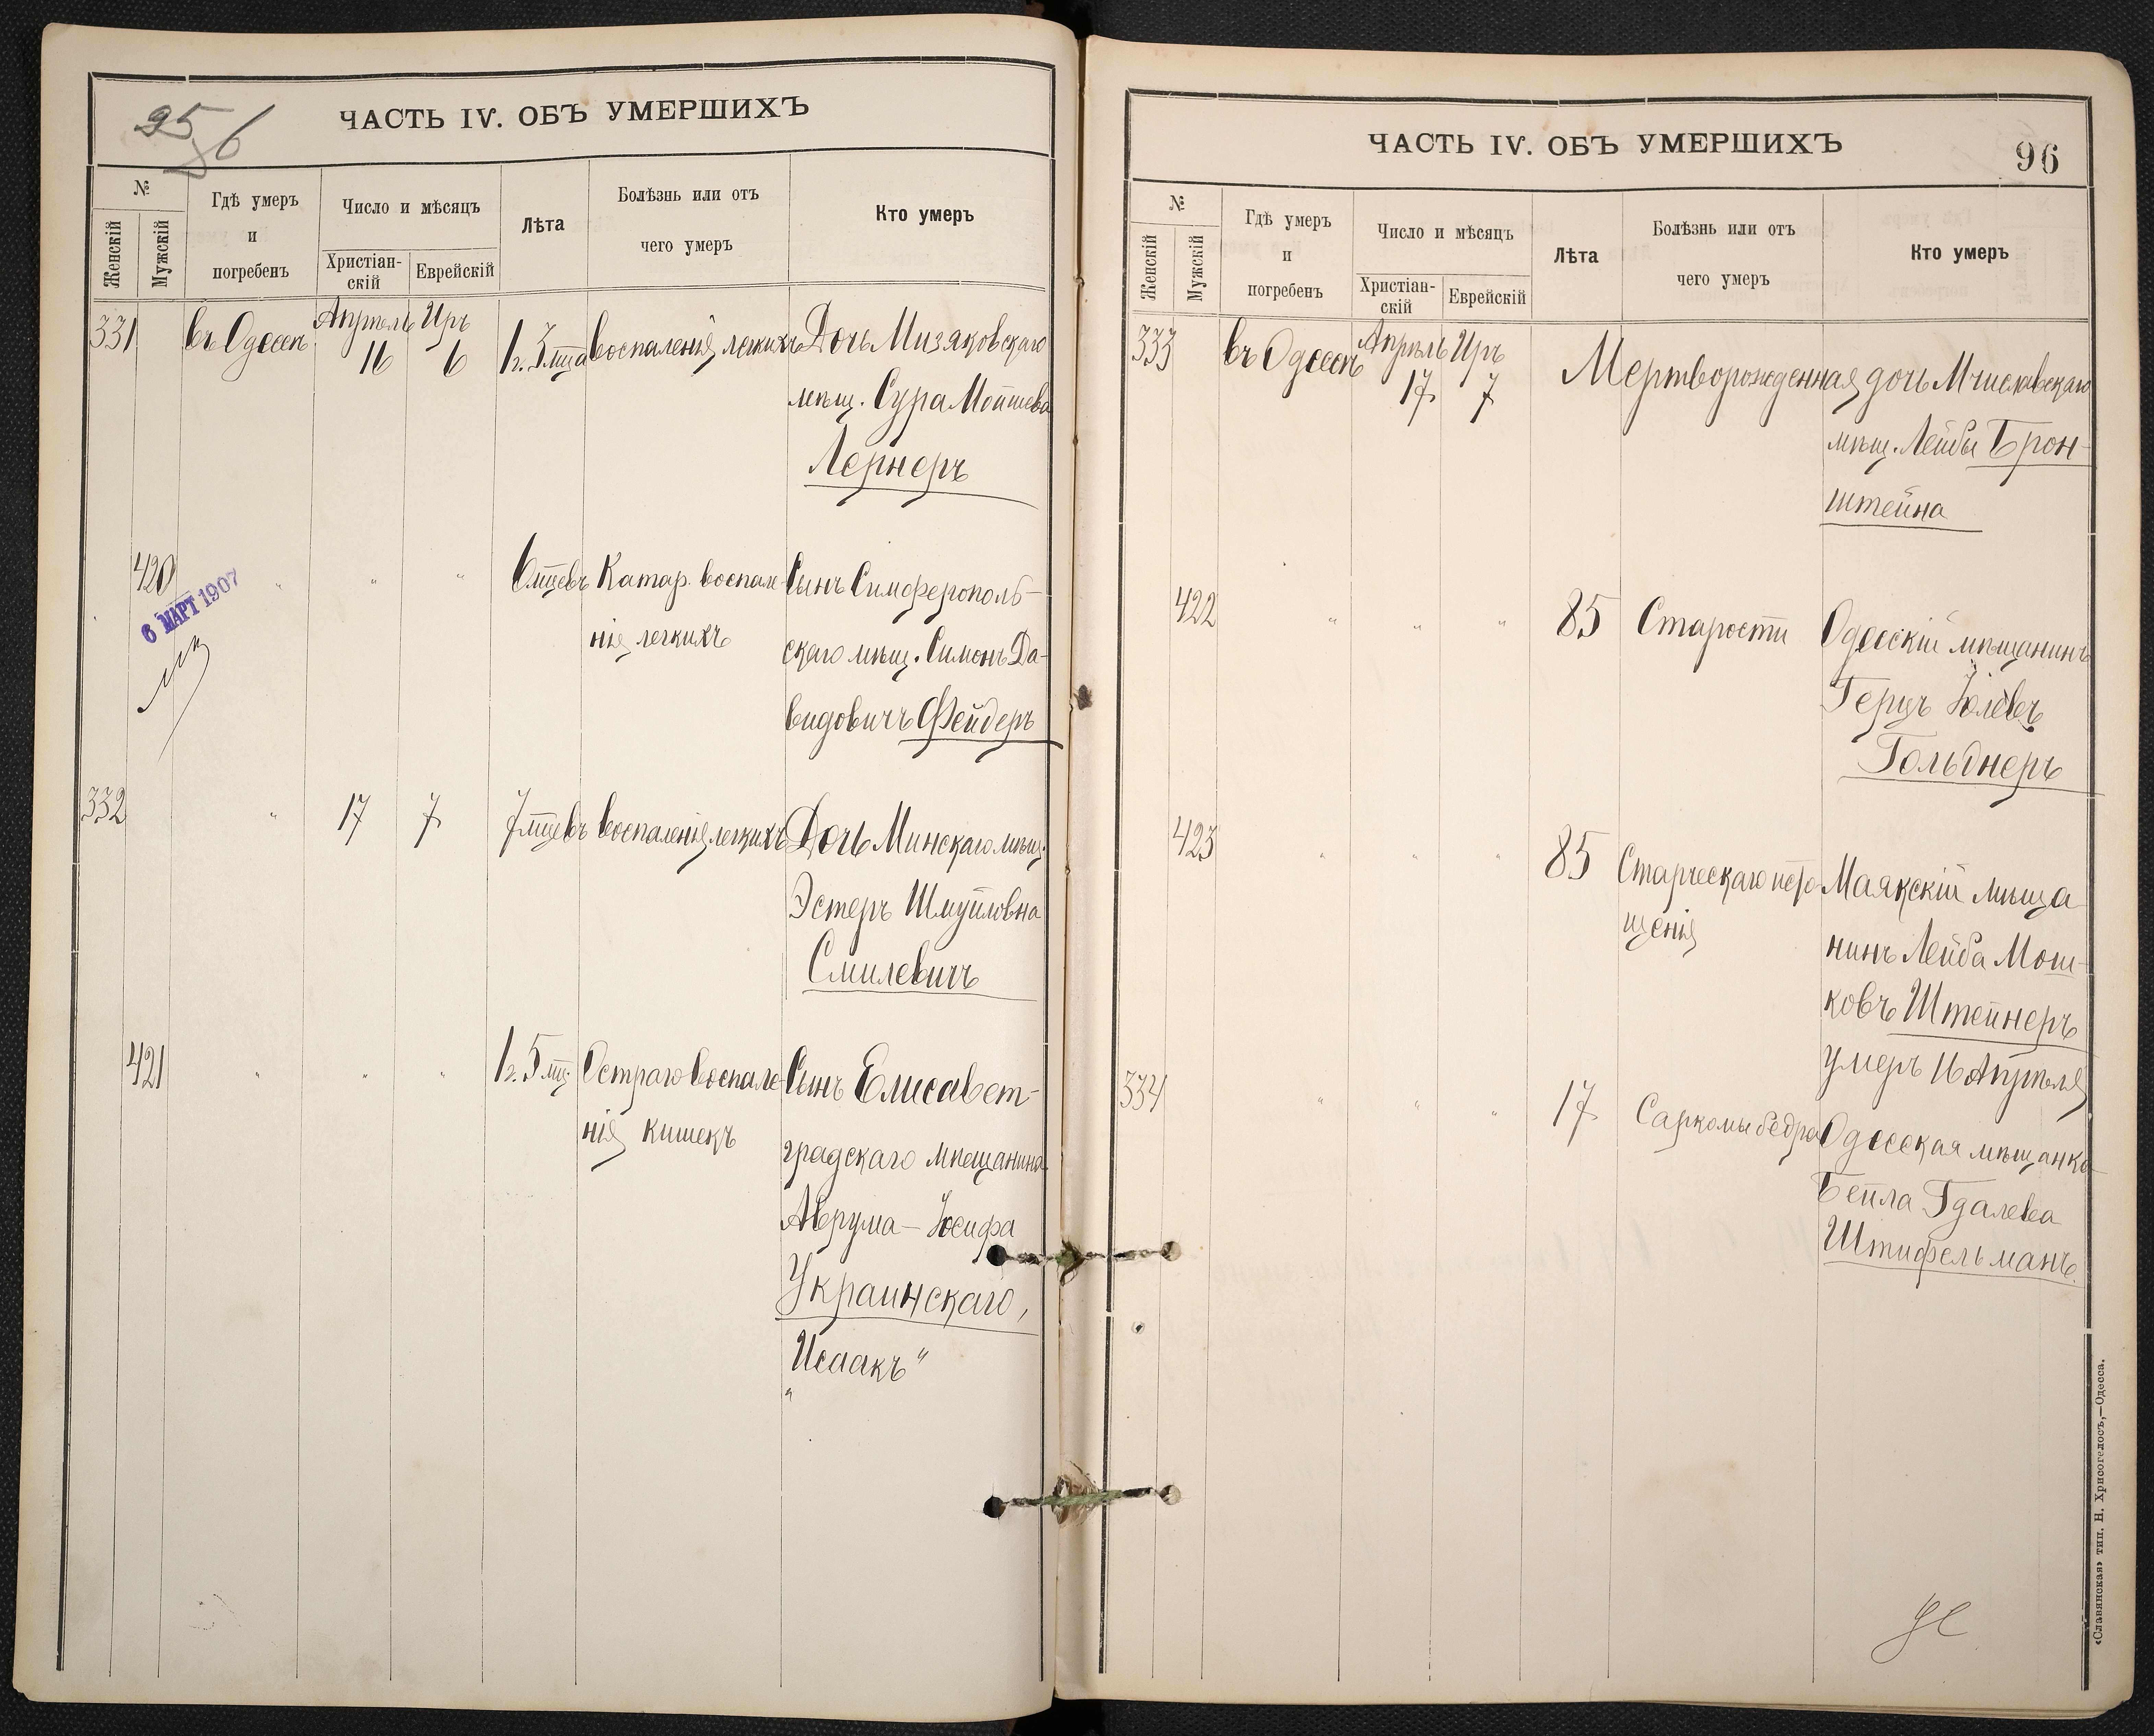 95
96
ЧАСТЬ IV. ОБЪ УМЕРШИХЪ
№
Женскій
Мужскій
Гдѣ умеръ
и
погребенъ
Число и мѣсяцъ
Христіан-
скій
Еврейскій
Лѣта
Болѣзнь или отъ
чего умеръ
Кто умеръ
331 въ Одессѣ Апрѣль 16 Иръ 6 1 г. 3 мца воспаленія легкихъ Дочь Мизяковскаго
мѣщ. Сура Мойшева
Лернеръ
420 " " " 6 мцевъ Катар. воспале- Сынъ Симферополь-
нія легкихъ скаго мѣщ. Симонъ Да-
видовичъ Фейдеръ
6 МАРТ 1907
332 " 17 7 7 мцевъ воспаленія легкихъ Дочь Минскаго мѣщ.
Эстеръ Шмуйловна
Смилевичъ
421 " " " 1 г. 5 мц. Остраго воспале- Сынъ Елисавет-
нія кишекъ градскаго мѣщанина
Аврума-Іосифа
Украинскаго,
"Исаакъ"
ЧАСТЬ IV. ОБЪ УМЕРШИХЪ
96
№
Женскій
Мужскій
Гдѣ умеръ
и
погребенъ
Число и мѣсяцъ
Христіан-
скій
Еврейскій
Лѣта
Болѣзнь или отъ
чего умеръ
Кто умеръ
333 въ Одессѣ Апрѣль 17 Иръ 7 Мертворожденная дочь Мчиславскаго
мѣщ. Лейбы Брон-
штейна
422 " " " 85 Старости Одесскій мѣщанинъ
Герцъ Іолевъ
Гольднеръ
423 " " " 85 Старческаго исто- Маякскій мѣща
щенія нинъ Лейба Мош-
ковъ Штейнеръ
умеръ 16 Апрѣля
334 " " " 17 Саркомы бедра Одесская мѣщанка
Бейла Гдалева
Штифельманъ.
«Славянская» тип. Н. Хрисогелосъ,—Одесса.